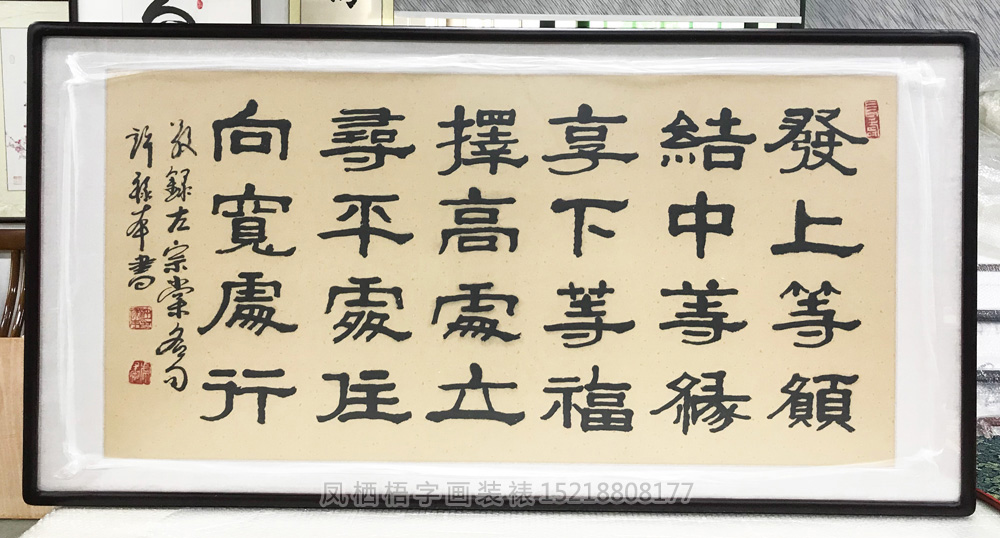 發上等願
結中等緣
享下等福
擇高處立
尋平處住
向寬處行
敬錄左宗棠名句
許祿本書
凤栖梧字画装裱15218808177